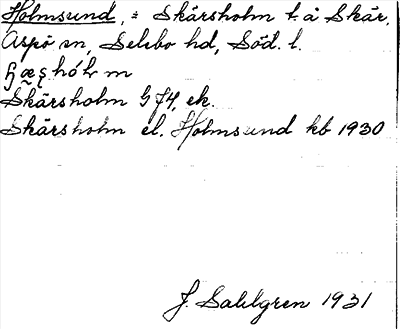 Holmsund, = Skärsholm t. å Skär,
Aspö sn, Selebo hd, Söd. l.
hólm
Skärsholm G 74, ek.
Skärsholm el. Holmsund kb 1930
J. Sahlgren 1931